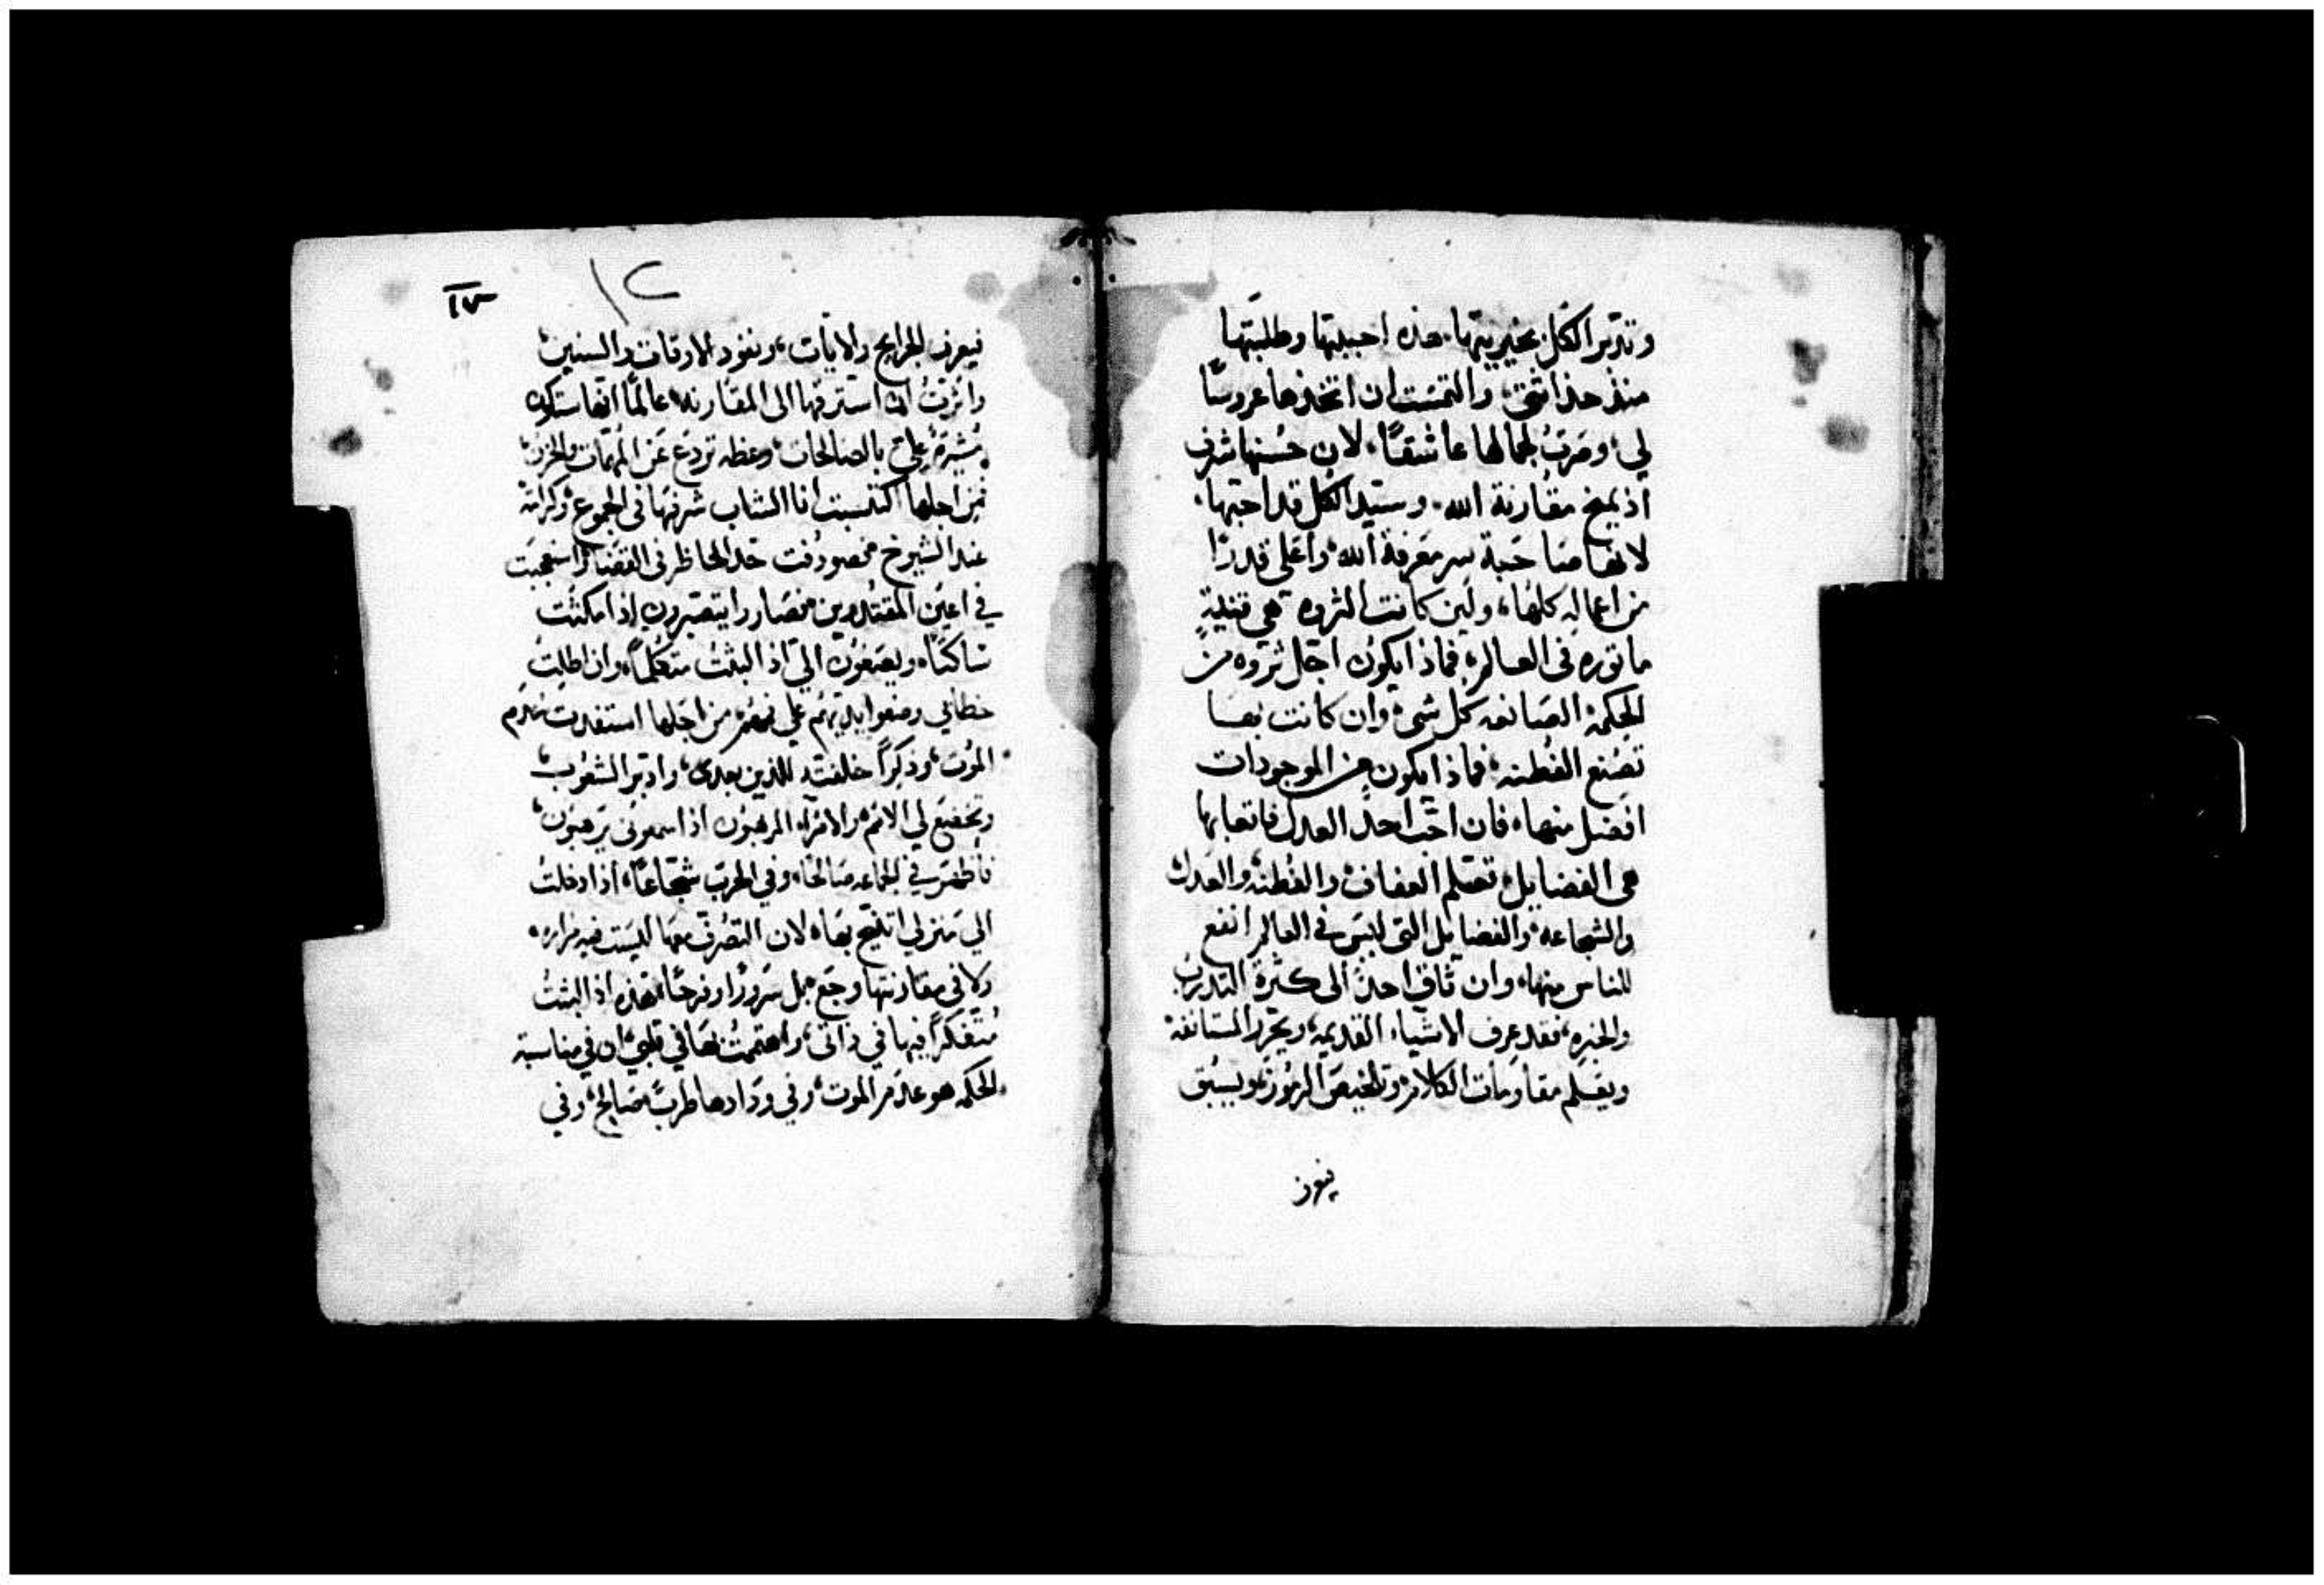 وتدبر الكل بخيريتها. هذه احببتها وطلبتها
منذ حداثتي، والتمست ان اتخذها عروسًا
لي، وصرتُ لجمالها عاشقًا، لان حُسنها شرف
اذ يمنح مقارنة الله. وسيد الكل قد احبها.
لانها صاحبة سر معرفة الله، واعلى قدرًا
من اعماله كلها، ولين كانت الثروه هي قنية
ماثوره في العالم، فماذا يكون اجل ثروه من
الحكمة الصانعه كل شي، وان كانت بها
تصنع الفطنه، فماذا يكون من الموجودات
افضل منها، فان احب احدٌ العدل فاتعابها
هي الفضايل، تعلم العفاف، والفطنه والعدل
والشجاعه، والفضايل التي ليس في العالم انفع
للناس منها، وان تاق احدٌ الى كثرة التدرب
والخبره، فقد عرف الاشياء القديمه، ويحزر المستانفه
ويعلم مقاومات الكلام، وتلخيص الرموز، ويسبق
فيعرف
١٢
١٧
فيعرف الجرايح والايات، ونفود الاوقات والسنين،
واثرتُ ان استزفها الى المقارنه، عالمًا انها ستكون
مُشيرةً علي بالصالحات، وعظه تردع عن المهمات والحزن،
فمن اجلها اكتسبت انا الشاب شرفها في الجموع، وكرامة
عند الشيوخ، فصودفت حد الحاظر في القضا، واستعجبت
في اعين المقتدرين، فصاروا يتصبرون اذا مكثت
ساكتًا، ويصغون الي اذ البثتُ متكلمًا، وان اطلت
خطابي وضعوا ايديهم على فمهم، من اجلها استفدت عدم
الموت، وذكرًا خلفته للذين بعدي، وادبر الشعوب،
وتخضع لي الامم، والامراء المرهبون اذا سمعوني يرهبون،
فاظهر في الجماعه صالحًا، وفي الحرب شجاعًا، اذا دخلت
الى منزلي اتنيح بها، لان التصرف معها ليست فيه مراره،
ولا في مقارنتها وجع، بل سرورًا وفرحًا، فهذه اذ البثتُ
مُتفكرًا فيها في ذاتي، واهتممتُ بها في قلبي، ان في مناسبة
الحكمه هو عدم الموت، وفي ودادها طربٌ صالح، وفي